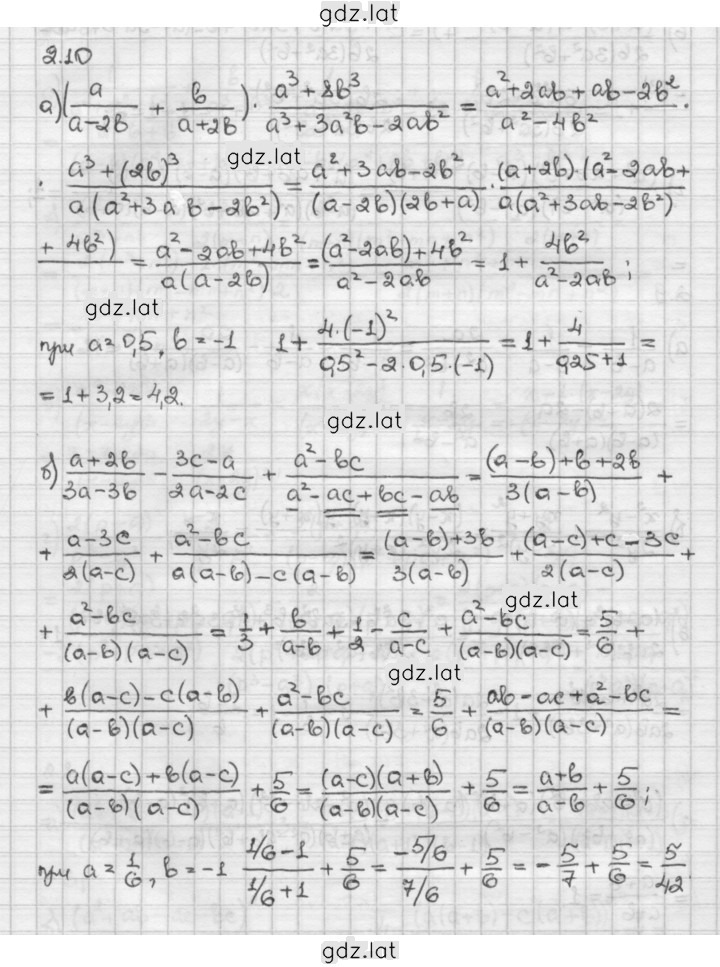 gdz.lat
2.10
а) (a/(a-2b) + b/(a+2b)) · (a³+8b³)/(a³+3a²b-2ab²) = (a²+2ab+ab-2b²)/(a²-4b²) ·
· (a³+(2b)³)/(a(a²+3ab-2b²)) = (a²+3ab-2b²)/((a-2b)(2b+a)) · ((a+2b)·(a²-2ab+
gdz.lat
+4b²)/(a(a²+3ab-2b²)) = (a²-2ab+4b²)/(a(a-2b)) = ((a²-2ab)+4b²)/(a²-2ab) = 1 + 4b²/(a²-2ab);
gdz.lat
при a=0,5, b=-1 1 + (4·(-1)²)/(0,5²-2·0,5·(-1)) = 1 + 4/(0,25+1) =
= 1+3,2=4,2.
gdz.lat
б) (a+2b)/(3a-3b) - (3c-a)/(2a-2c) + (a²-bc)/(a²-ac+bc-ab) = ((a-b)+b+2b)/(3(a-b)) +
+ (a-3c)/(2(a-c)) + (a²-bc)/(a(a-b)-c(a-b)) = ((a-b)+3b)/(3(a-b)) + ((a-c)+c-3c)/(2(a-c)) +
gdz.lat
+ (a²-bc)/((a-b)(a-c)) = 1/3 + b/(a-b) + 1/2 - c/(a-c) + (a²-bc)/((a-b)(a-c)) = 5/6 +
gdz.lat
+ (b(a-c)-c(a-b))/((a-b)(a-c)) + (a²-bc)/((a-b)(a-c)) = 5/6 + (ab-ac+a²-bc)/((a-b)(a-c)) =
= (a(a-c)+b(a-c))/((a-b)(a-c)) + 5/6 = ((a-c)(a+b))/((a-b)(a-c)) + 5/6 = (a+b)/(a-b) + 5/6;
при a=1/6, b=-1 (1/6-1)/(1/6+1) + 5/6 = (-5/6)/(7/6) + 5/6 = -5/7 + 5/6 = 5/42.
gdz.lat